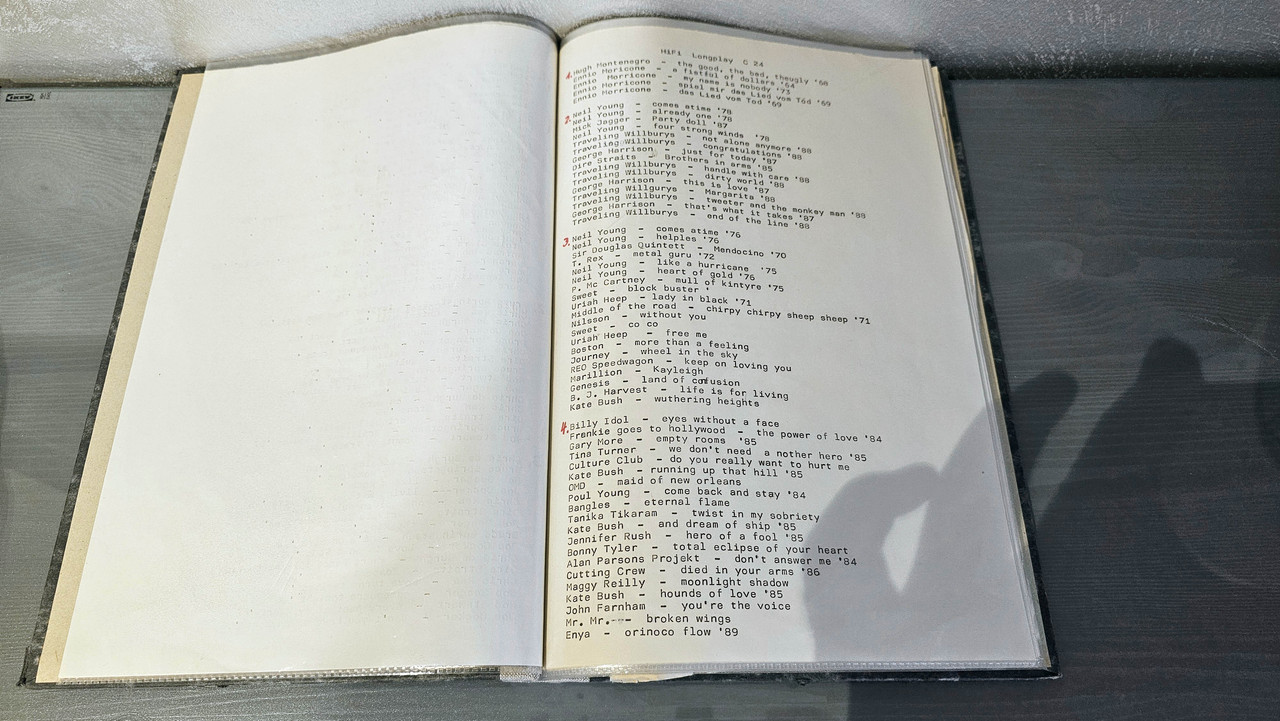 HiFi Longplay C 24
1. Hugh Montenegro - the good, the bad, theugly '68
Ennio Moricone - a fistful of dollers '64
Ennio Morricone - my name is nobody '73
Ennio Morricone - spiel mir das Lied vom Tod '69
Ennio Morricone - das Lied vom Tod '69
2. Neil Young - comes atime '78
Neil Young - already one '78
Mick Jagger - Party doll '87
Neil Young - four strong winds '78
Traveling Willburys - not alone anymore '88
Traveling Willburys - congratulations '88
George Harrison - just for today '87
Dire Straits - Brothers in arms '85
Traveling Willburys - handle with care '88
Traveling Willburys - dirty world '88
George Harrison - this is love '87
Traveling Willgurys - Margarita '88
Traveling Willburys - tweeter and the monkey man '88
George Harrison - that's what it takes '87
Traveling Willburys - end of the line '88
3. Neil Young - comes atime '76
Neil Young - helples '76
Sir Douglas Quintett - Mendocino '70
T. Rex - metal guru '72
Neil Young - like a hurricane '75
Neil Young - heart of gold '76
P. Mc Cartney - mull of kintyre '75
Sweet - block buster '
Uriah Heep - lady in black '71
Middle of the road - chirpy chirpy sheep sheep '71
Nilsson - without you
Sweet - co co
Uriah Heep - free me
Boston - more than a feeling
Journey - wheel in the sky
REO Speedwagon - keep on loving you
Marillion - Kayleigh
Genesis - land of confusion
B. J. Harvest - life is for living
Kate Bush - wuthering heights
4. Billy Idol - eyes without a face
Frankie goes to hollywood - the power of love '84
Gary More - empty rooms '85
Tina Turner - we don't need a nother hero '85
Culture Club - do you really want to hurt me
Kate Bush - running up that hill '85
OMD - maid of new orleans
Poul Young - come back and stay '84
Bangles - eternal flame
Tanika Tikaram - twist in my sobriety
Kate Bush - and dream of ship '85
Jennifer Rush - hero of a fool '85
Bonny Tyler - total eclipse of your heart
Alan Parsons Projekt - don't answer me '84
Cutting Crew - died in your arms '86
Maggy Reilly - moonlight shadow
Kate Bush - hounds of love '85
John Farnham - you're the voice
Mr. Mr.--- broken wings
Enya - orinoco flow '89
IKEA